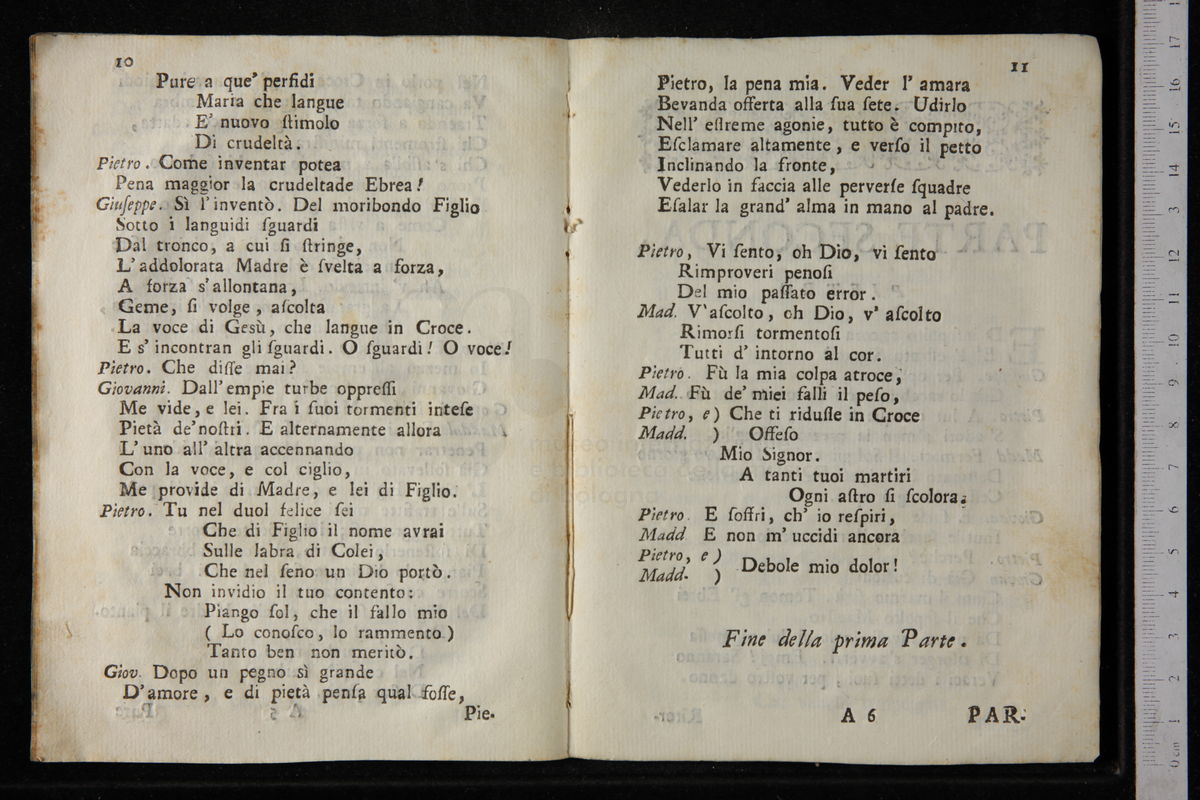 10
Pure a que' perfidi
Maria che langue
E' nuovo ſtimolo
Di crudeltà.
Pietro. Come inventar potea
Pena maggior la crudeltade Ebrea!
Giuſeppe. Sì l'inventò. Del moribondo Figlio
Sotto i languidi ſguardi
Dal tronco, a cui ſi ſtringe,
L'addolorata Madre è ſvelta a forza,
A forza s'allontana,
Geme, ſi volge, aſcolta
La voce di Gesù, che langue in Croce.
E s'incontran gli ſguardi. O ſguardi! O voce!
Pietro. Che diſſe mai?
Giovanni. Dall'empie turbe oppreſſi
Me vide, e lei. Fra i ſuoi tormenti inteſe
Pietà de'noſtri. E alternamente allora
L'uno all'altra accennando
Con la voce, e col ciglio,
Me provide di Madre, e lei di Figlio.
Pietro. Tu nel duol felice ſei
Che di Figlio il nome avrai
Sulle labra di Colei,
Che nel ſeno un Dio portò.
Non invidio il tuo contento:
Piango ſol, che il fallo mio
( Lo conoſco, lo rammento )
Tanto ben non meritò.
Giov. Dopo un pegno sì grande
D'amore, e di pietà penſa qual foſſe,
Pie-
11
Pietro, la pena mia. Veder l'amara
Bevanda offerta alla ſua ſete. Udirlo
Nell'eſtreme agonie, tutto è compito,
Eſclamare altamente, e verſo il petto
Inclinando la fronte,
Vederlo in faccia alle perverſe ſquadre
Eſalar la grand'alma in mano al padre.
Pietro, Vi ſento, oh Dio, vi ſento
Rimproveri penoſi
Del mio paſſato error.
Mad. V'aſcolto, oh Dio, v'aſcolto
Rimorſi tormentoſi
Tutti d'intorno al cor.
Pietro. Fù la mia colpa atroce,
Mad. Fù de'miei falli il peſo,
Pietro, e) Che ti riduſſe in Croce
Madd. ) Offeſo
Mio Signor.
A tanti tuoi martiri
Ogni aſtro ſi ſcolora;
Pietro. E ſoffri, ch'io reſpiri,
Madd E non m'uccidi ancora
Pietro, e )
Madd. ) Debole mio dolor!
Fine della prima Parte.
A 6
PAR-